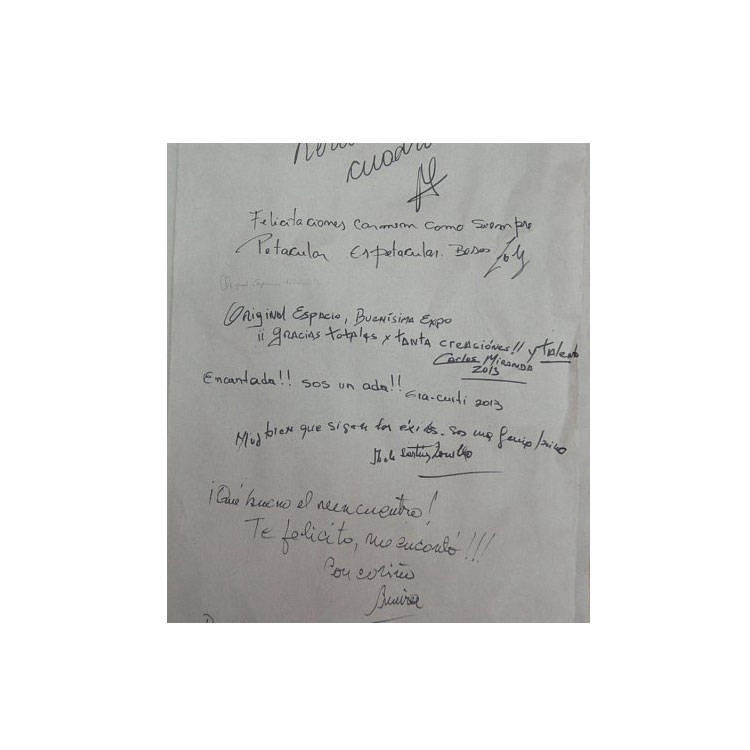 cuadro
Felicitaciones Carmen como siempre
Petacular Espetacular. Besos Loly
Original Espacio, Buenísima Expo
¡¡ gracias totales x tanta creaciónes!! y talento
Carlos Miranda
2013
Encantada!! sos un ada!!
2013
Muy bien que sigan los éxitos. sos una genia
¡Qué bueno el reencuentro!
Te felicito, me encantó!!!
Con cariño